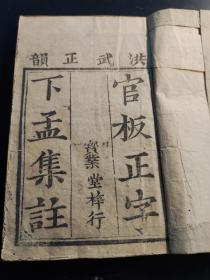 洪武正韻
官板正字
寳業堂梓行
下孟集註